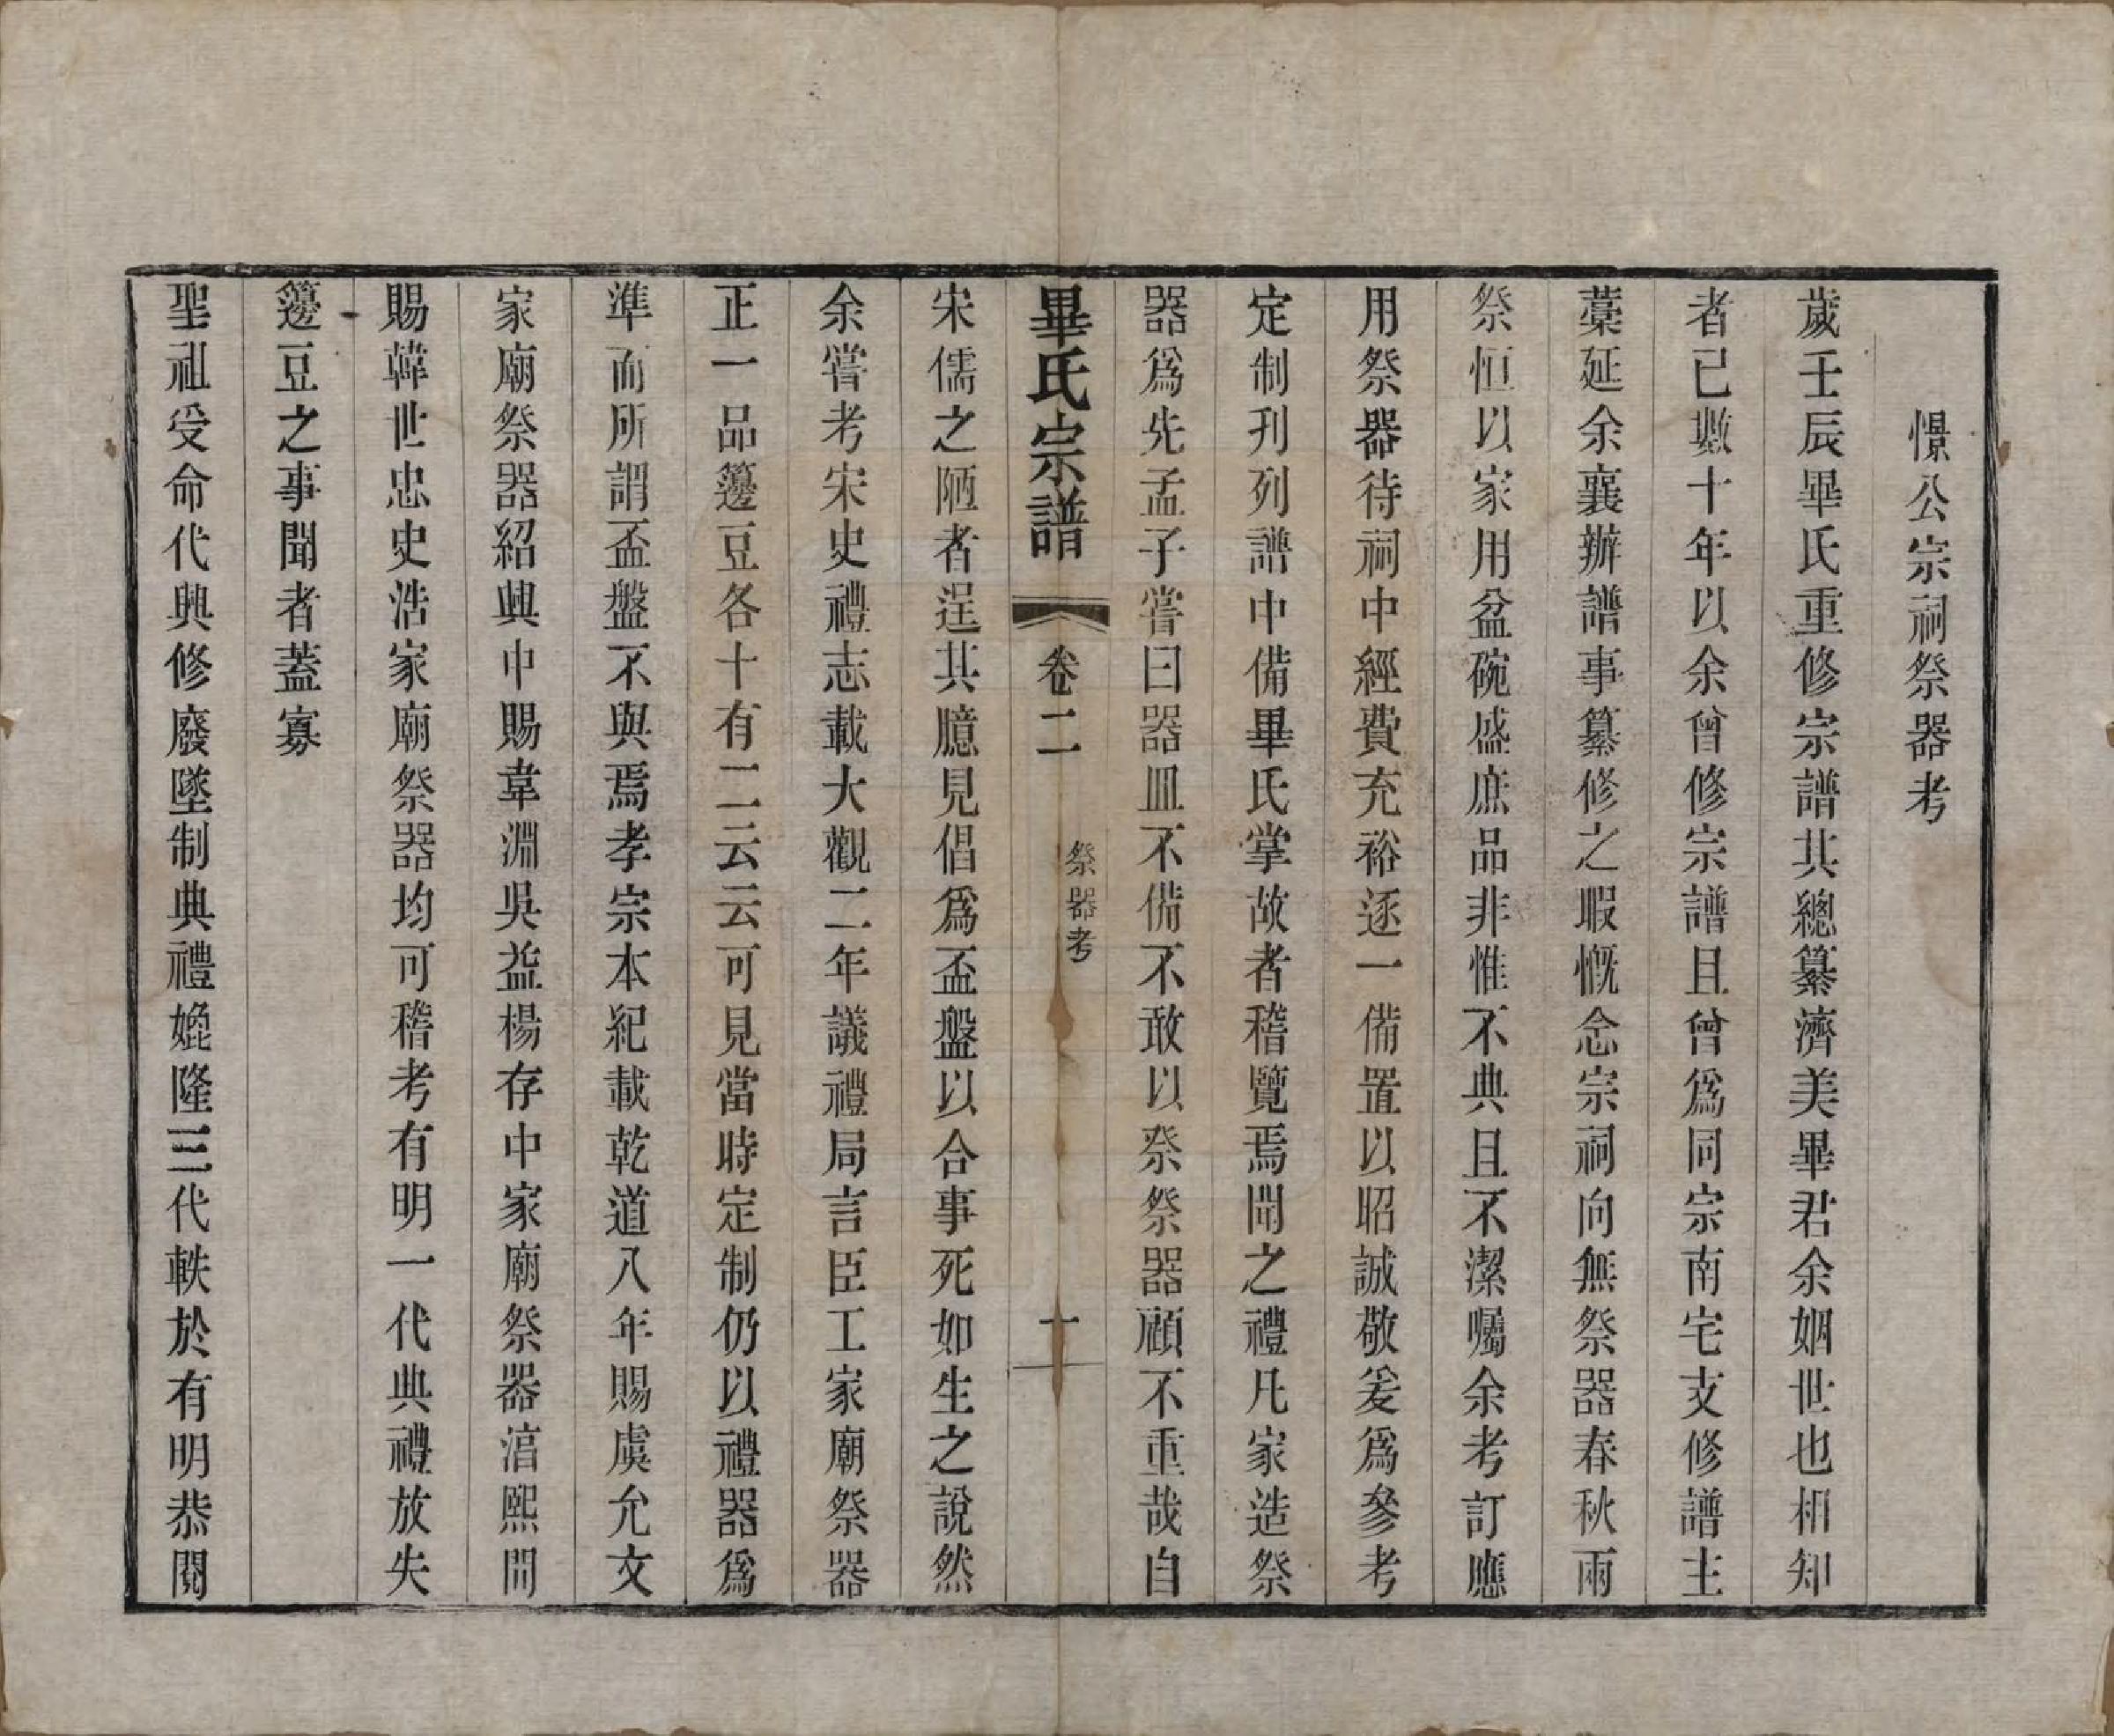 憬公宗祠祭器考
歲壬辰畢氏重修宗譜其總纂濟美畢君余姻世也相知
者已數十年以余曾修宗譜且曾爲同宗南宅支修譜主
藁延余襄辦譜事纂修之暇慨念宗祠向無祭器春秋兩
祭恒以家用盆碗盛庶品非惟不典且不潔囑余考訂應
用祭器待祠中經費充裕逐一備置以昭誠敬爰爲參考
定制刋列譜中備畢氏掌故者稽覽焉聞之禮凡家造祭
器爲先孟子嘗曰器皿不備不敢以祭祭器顧不重哉自
畢氏宗譜 卷二 祭器考 一
宋儒之陋者逞其臆見倡爲盃盤以合事死如生之說然
余嘗考宋史禮志載大觀二年議禮局言臣工家廟祭器
正一品籩豆各十有二云云可見當時定制仍以禮器爲
準而所謂盃盤不與焉孝宗本紀載乾道八年賜虞允文
家廟祭器紹興中賜韋淵吳益楊存中家廟祭器淳熙間
賜韓世忠史浩家廟祭器均可稽考有明一代典禮放失
籩豆之事聞者蓋寡
聖祖受命代興修廢墜制典禮媲隆三代軼於有明恭閱